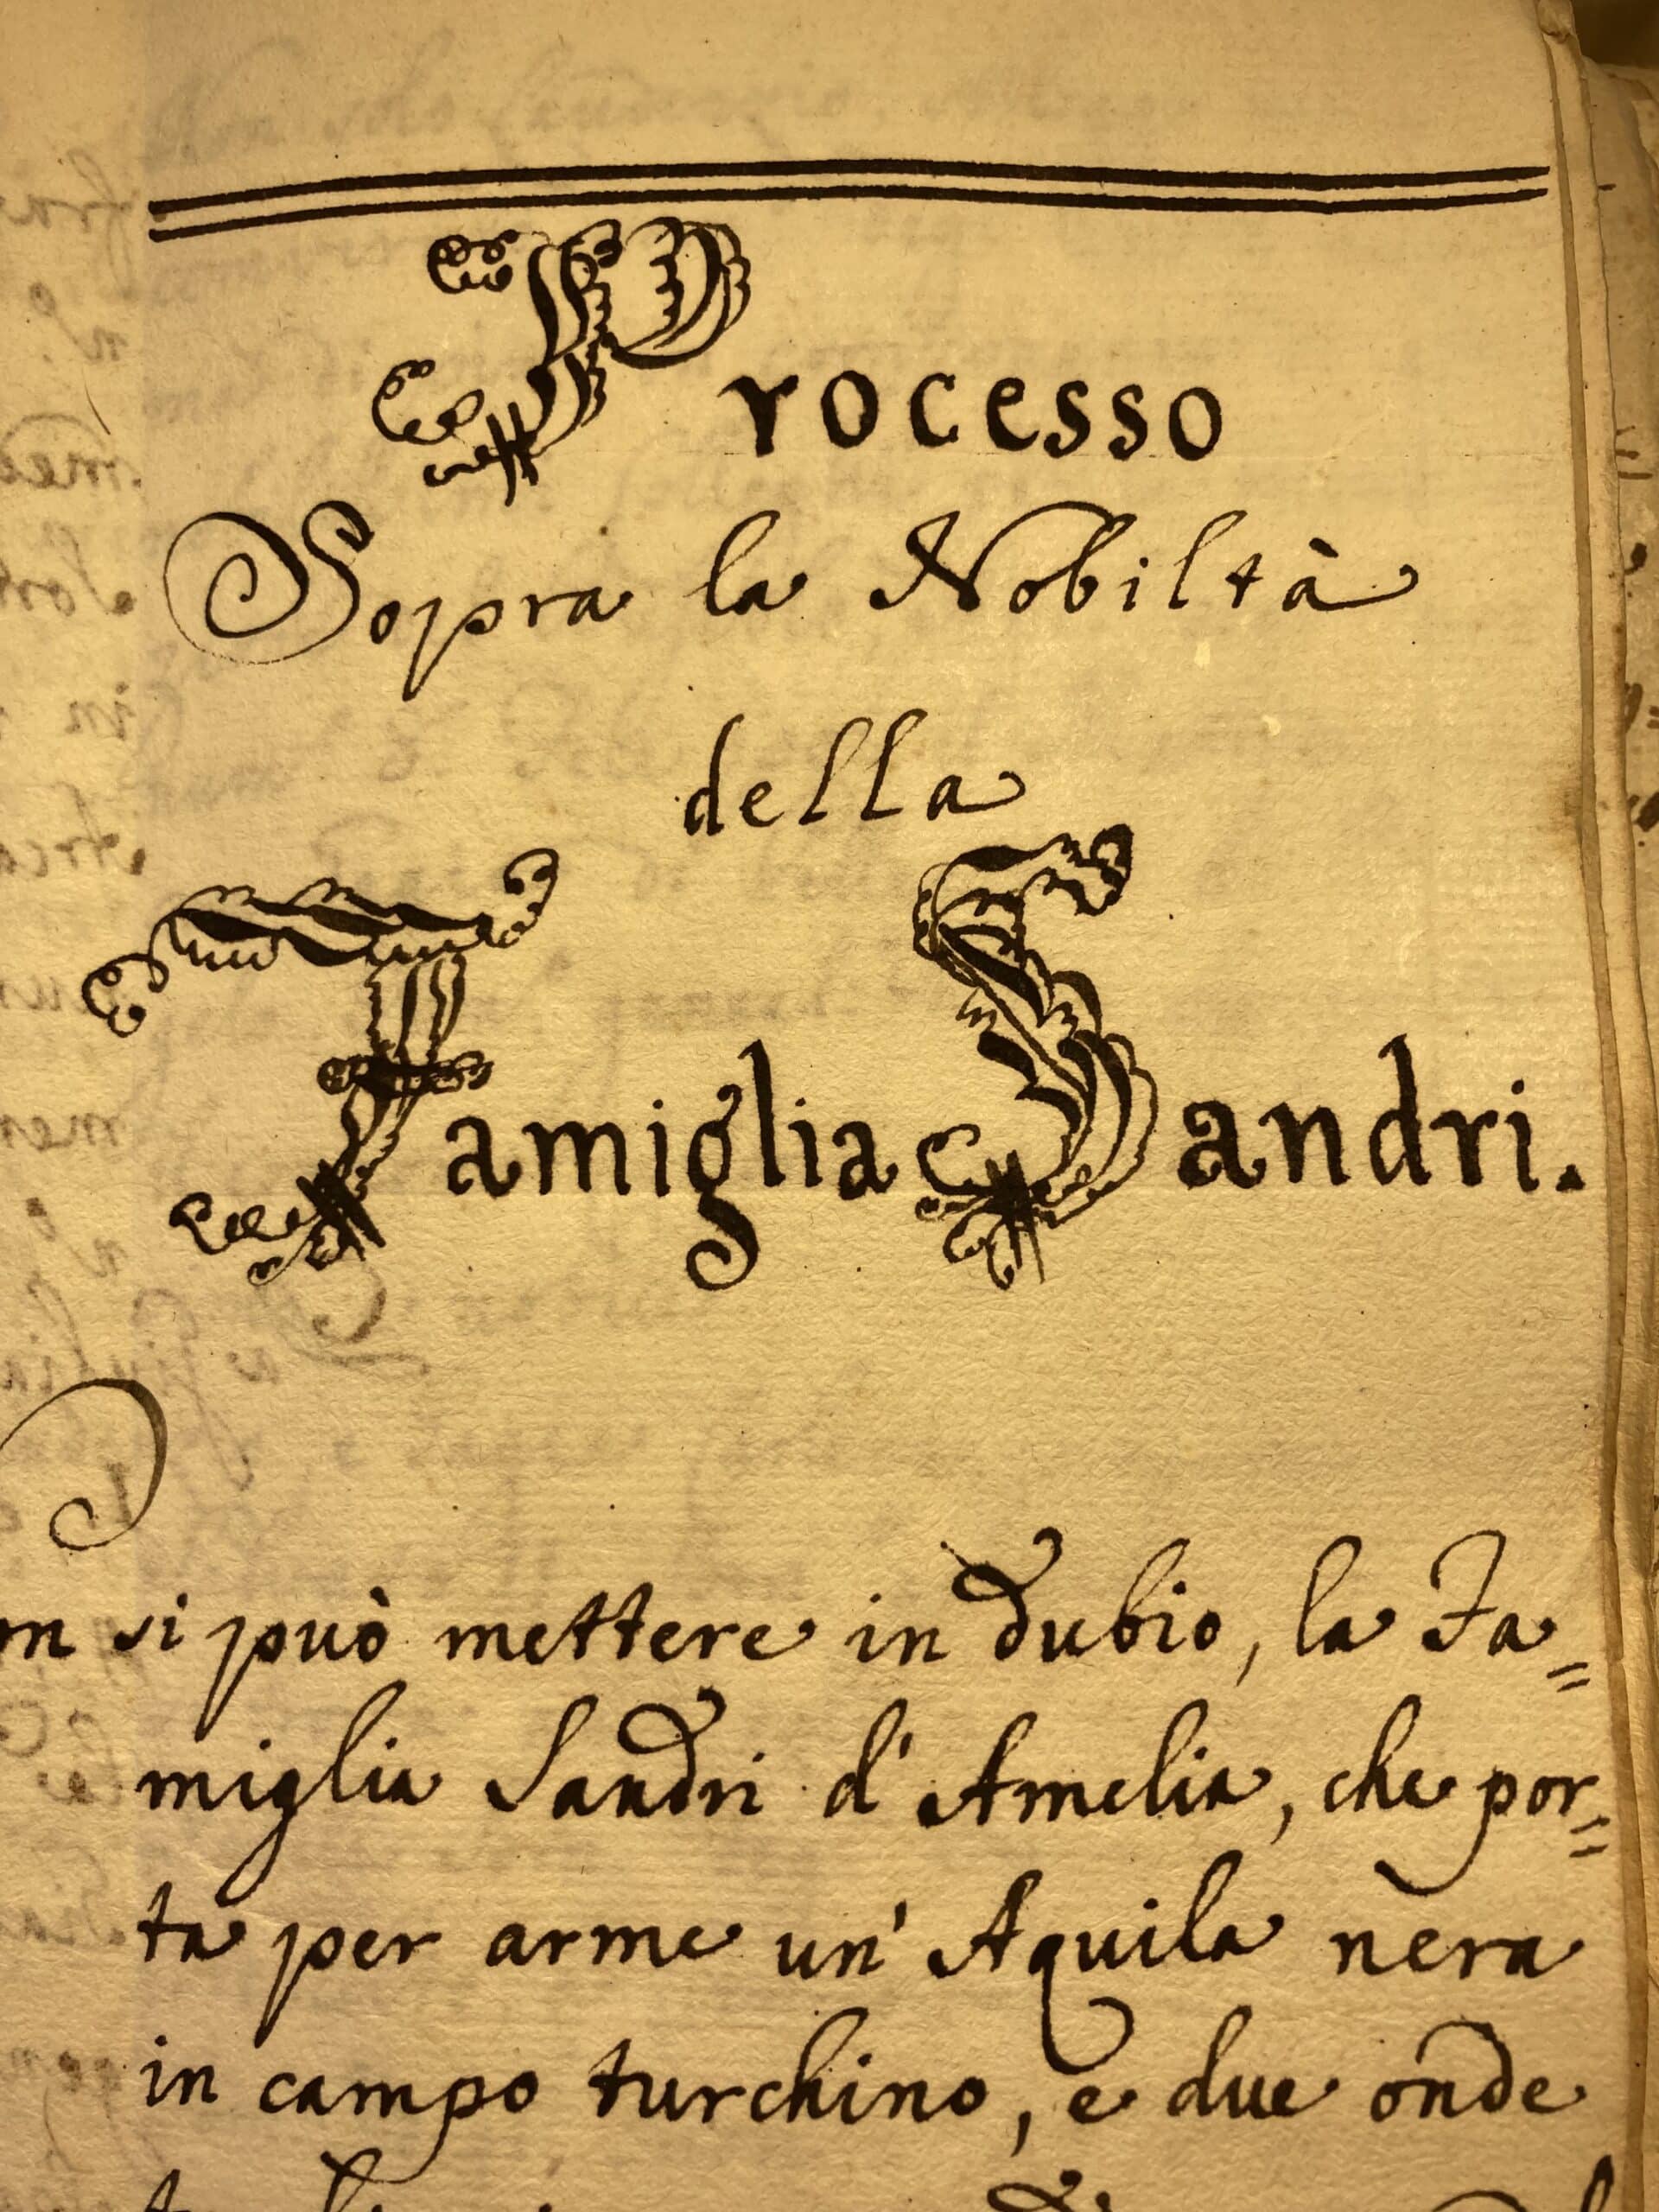 Processo
Sopra la Nobiltà
della
Famiglia Sandri.
si può mettere in dubio, la Fa=
miglia Sandri d'Amelia, che por=
ta per arme un' Aquila nera
in campo turchino, e due onde